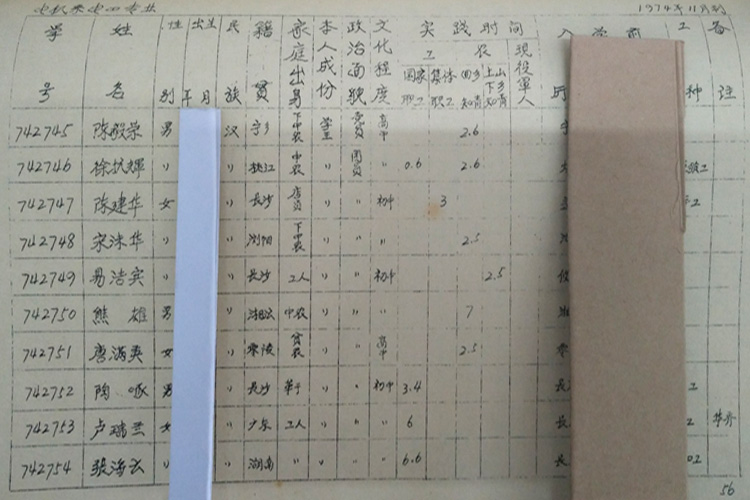 电机系电四专业 1974年11月制
学号 姓名 性别 出生年月 民族 籍贯 家庭出身 本人成份 政治面貌 文化程度 实践时间 入学前 工种 备注
工 农 现役军人
国家职工 集体职工 回乡知青 上山下乡知青
742745 陈毅荣 男 汉 宁乡 下中农 学生 党员 高中 2.6
742746 徐 辉 〃 〃 中农 〃 团员 〃 0.6 2.6
742747 陈建华 女 〃 长沙 店员 〃 〃 初中 3
742748 宋沫华 〃 〃 浏阳 下中农 〃 〃 〃 2.5
742749 易洁实 〃 〃 长沙 工人 〃 〃 初中 2.5
742750 熊雄 男 〃 中农 〃 〃 〃 7
742751 唐满英 女 〃 零陵 贫农 〃 〃 高中 2.5
742752 陶啄 男 〃 长沙 革干 〃 〃 初中 3.4 长 工
742753 卢瑞兰 女 〃 广东 工人 〃 〃 〃 6 长
742754 张海云 〃 〃 湖南 〃 〃 〃 〃 6.6 长
56